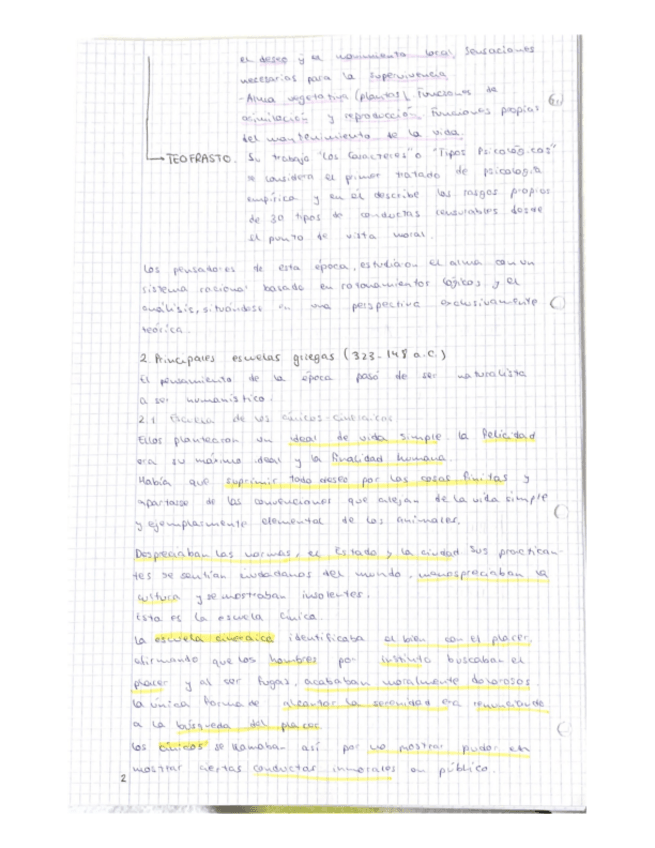 el deseo y el movimiento local. Sensaciones
necesarias para la supervivencia
-Alma vegetativa (plantas). Funciones de
asimilación y reproducción. Funciones propias
del mantenimiento de la vida.
TEOFRASTO. Su trabajo "Los Caracteres" o "Tipos Psicológicos"
considera el primer tratado de psicología
empírica y en él describe los rasgos propios
de 30 tipos de conductas censurables desde
el punto de vista moral.
Los pensadores de esta época, estudiaron el alma con un
sistema racional basado en razonamientos lógicos y el
análisis, situándose en una perspectiva exclusivamente
teórica.
2. Principales escuelas griegas (323-148 a.C.)
El pensamiento de la época pasó de ser naturalista
a ser humanístico.
2.1 Escuela de los cínicos-cineraicos
Ellos plantearon un ideal de vida simple. la felicidad
era su máximo ideal y la finalidad humana.
Había que suprimir todo deseo por las cosas finitas y
apartarse de las convenciones que alejan de la vida simple
y ejemplarmente elemental de los animales.
Despreciaban las normas, el Estado y la ciudad sus practican-
tes se sentían ciudadanos del mundo, menospreciaban la
cultura y se mostraban insolentes.
Esta es la escuela cínica.
La escuela cineraica identificaba el bien con el placer,
afirmando que los hombres por instinto buscaban el
placer y al ser fugas, acababan moralmente dolorosos.
la única forma de alcanzar la serenidad era renunciando
a la búsqueda del placer.
Los cínicos se llamaban así por no mostrar pudor en
mostrar ciertas conductas inmorales en público.
2